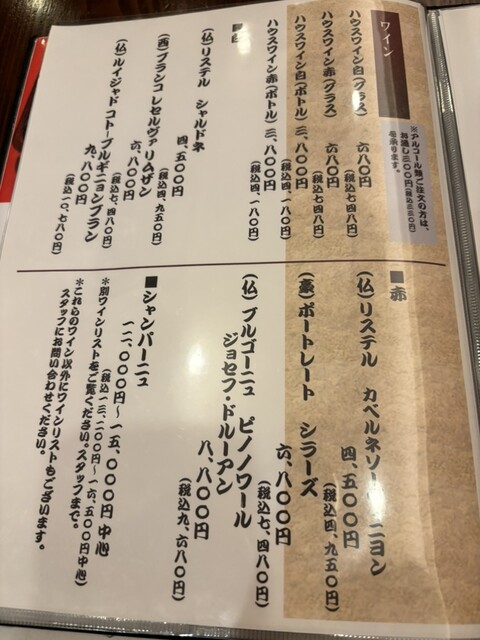 ワイン
※アルコール類ご注文の方は、
お通し三〇〇円(税込三三〇円)
を承ります。
ハウスワイン白(グラス) 六八〇円
(税込七四八円)
ハウスワイン赤(グラス) 六八〇円
(税込七四八円)
ハウスワイン白(ボトル) 三、八〇〇円
(税込四、一八〇円)
ハウスワイン赤(ボトル) 三、八〇〇円
(税込四、一八〇円)
■白
(仏)リステル シャルドネ
四、五〇〇円
(税込四、九五〇円)
(西)ブランコ レセルヴァ リムザン
六、八〇〇円
(税込七、四八〇円)
(仏)ルイジャド コトーブルギニヨンブラン
九、八〇〇円
(税込一〇、七八〇円)
■赤
(仏)リステル カベルネソーヴィニヨン
四、五〇〇円
(税込四、九五〇円)
(豪)ポートレート シラーズ
六、八〇〇円
(税込七、四八〇円)
(仏)ブルゴーニュ ピノノワール
ジョセフ・ドルーアン
八、八〇〇円
(税込九、六八〇円)
■シャンパーニュ
一二、〇〇〇円〜一五、〇〇〇円 中心
(税込一三、二〇〇円〜一六、五〇〇円 中心)
*別ワインリストをご覧ください。スタッフまで。
*これらのワイン以外にワインリストもございます。
スタッフにお問い合わせください。